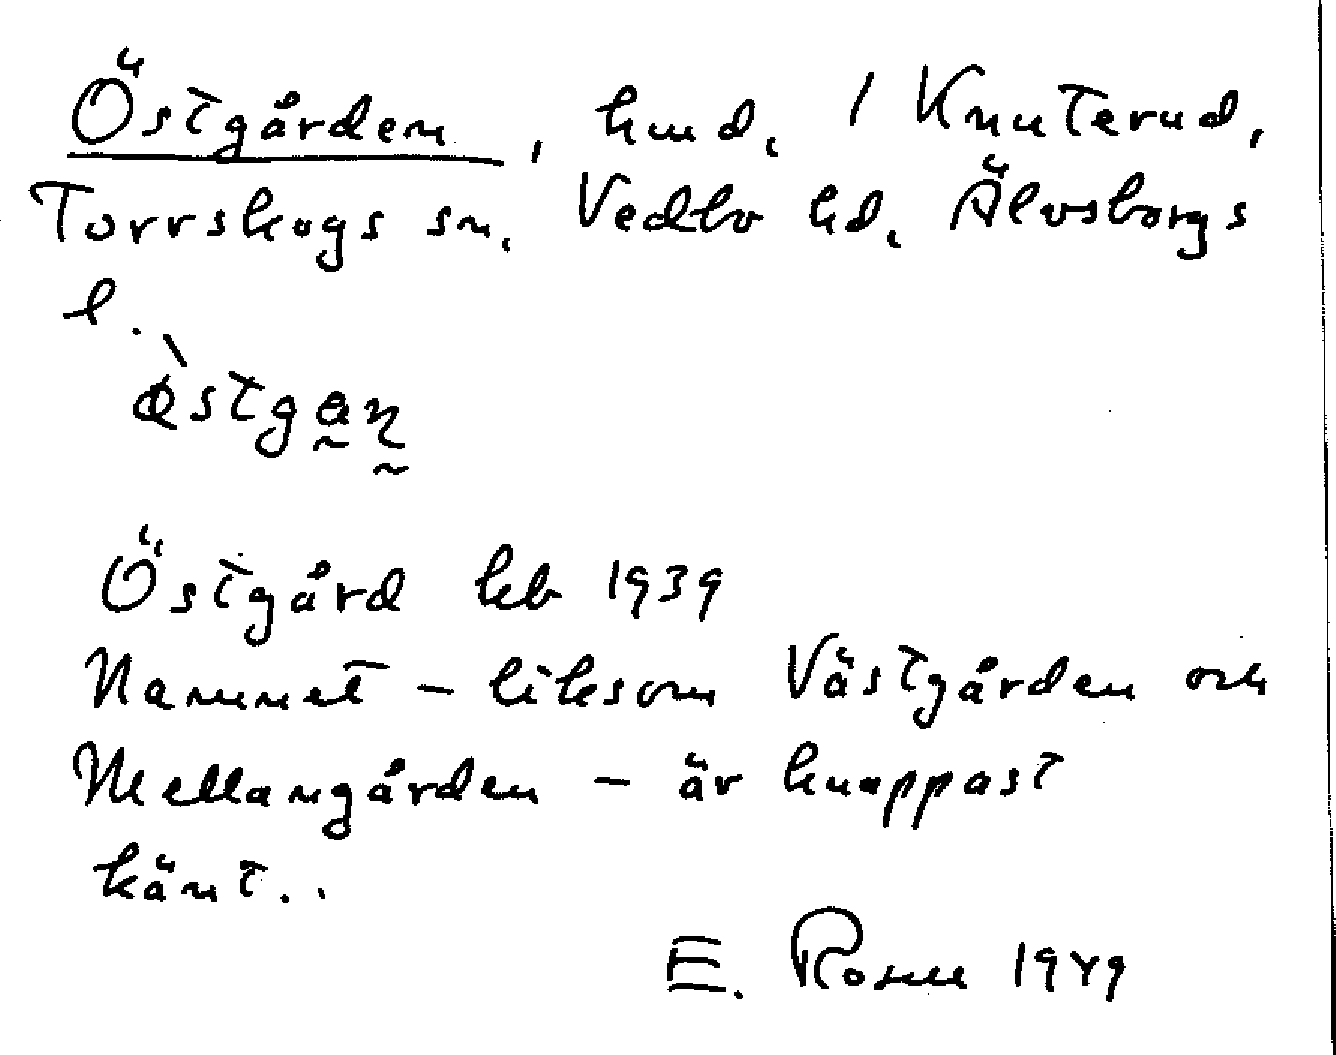 Östgården, hmd, 1 Knuterud,
Torrskogs sn, Vedbo hd, Älvsborgs
l.
Östgård kb 1939
Namnet – liksom Västgården och
Mellangården – är knappast
känt..
E. Rosell 1949